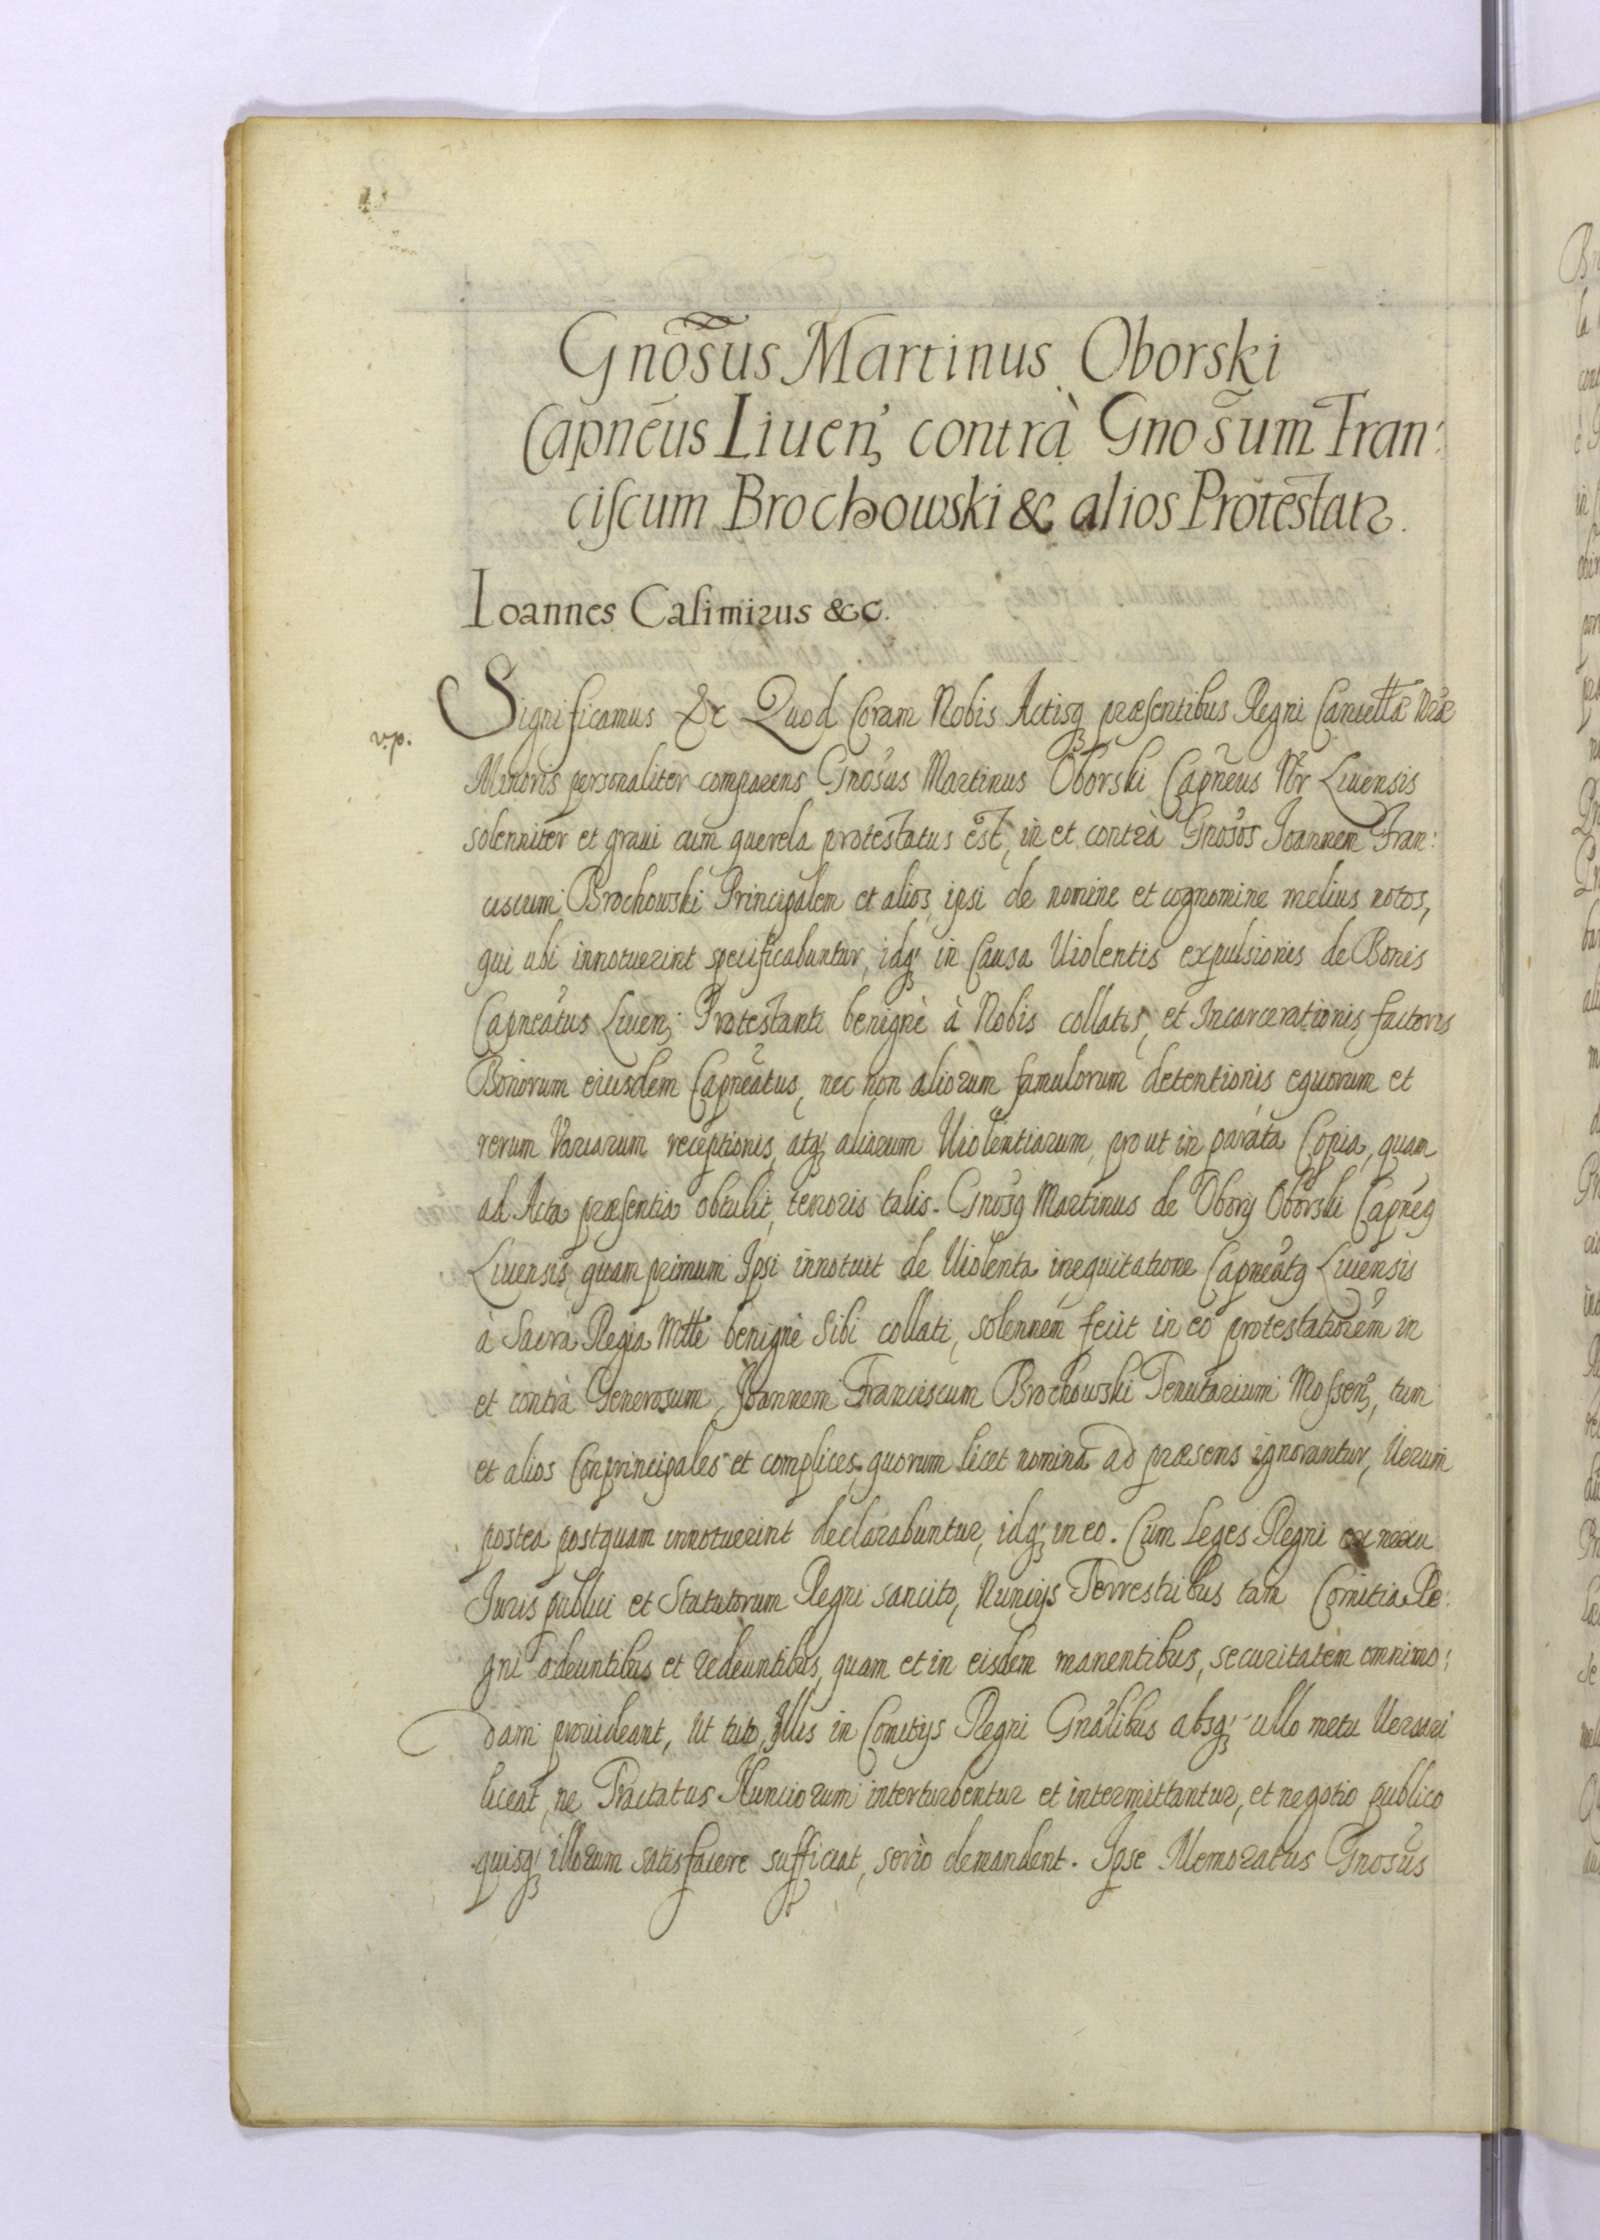 Gnõsus Martinus Oborski
Capnẽus Liueñ, contrà Gnosũm Fran:
ciscum Brochowski & alios Protestatr.
Ioannes Casimirus &c.
v.p.
Significamus &c Quod Coram Nobis Actisq præsentibus Regni Cancellæ Nræ
Minoris personaliter comparens Gnosus Martinus Oborski Capneus Nr Liuensis
solenniter et graui cum querela protestatus est, in et contrà Gnosos Joannem Fran:
ciscum Brochowski Principalem et alios, ipsi de nomine et cognomine melius notos,
qui ubi innotuerint specificabuntur, idq in Causa Uiolentis expulsionis de Bonis
Capneatus Liuen; Protestanti benignè à Nobis collatis, et Incarcerationis factoris
Bonorum eiusdem Capneatus, nec non aliorum famulorum detentionis equorum et
rerum Variarum receptionis, atq aliarum Uiolentiarum, prout in parata Copia, quam
ad Acta præsentia obtulit, tenoris talis. Gnosq Martinus de Obory Oborski Capneq
Liuensis, quam primum Ipsi innotuit de Uiolenta inequitatione Capneatq Liuensis
à Sacra Regia Mtte benignè Sibi collati, solennem fecit in eo protestationem in
et contrà Generosum Joannem Franciscum Brochowski Tenutarium Mossen, tum
et alios Conprincipales et complices, quorum licet nomina ad præsens ignorantur, Uerum
postea postquam innotuerint declarabuntur, idq in eo. Cum Leges Regni ex nexu
Juris publici et Statutorum Regni sancito, Nuncijs Terrestribus tam Comitia Re:
gni adeuntibus et redeuntibus, quam et in eisdem manentibus, securitatem omnimo:
dam prouideant, Ut tuto Illis in Comitijs Regni Gnalibus absq ullo metu Uersari
liceat, ne Tractatus Nunciorum interturbentur et intermittantur, et negotio publico
quisq illorum satisfacere sufficiat, serio demandent. Ipse Memoratus Gnosus